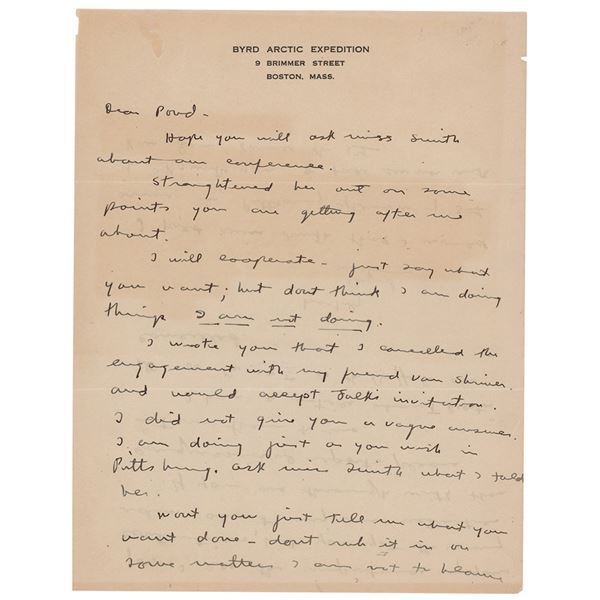 BYRD ARCTIC EXPEDITION
9 BRIMMER STREET
BOSTON, MASS.
Dear Pond -
Hope you will ask miss Smith
about our conference.
Straightened her out on some
points you are getting after me
about.
I will cooperate - just say what
you want; but dont think I am doing
things I am not doing.
I wrote you that I cancelled the
engagement with my friend van
and would accept invitation.
I did not give you a vague answer.
I am doing just as you wish in
Pittsburg. ask miss Smith what I told
her.
wont you just tell me what you
want done - dont rub it in on
some matters I am not to blame